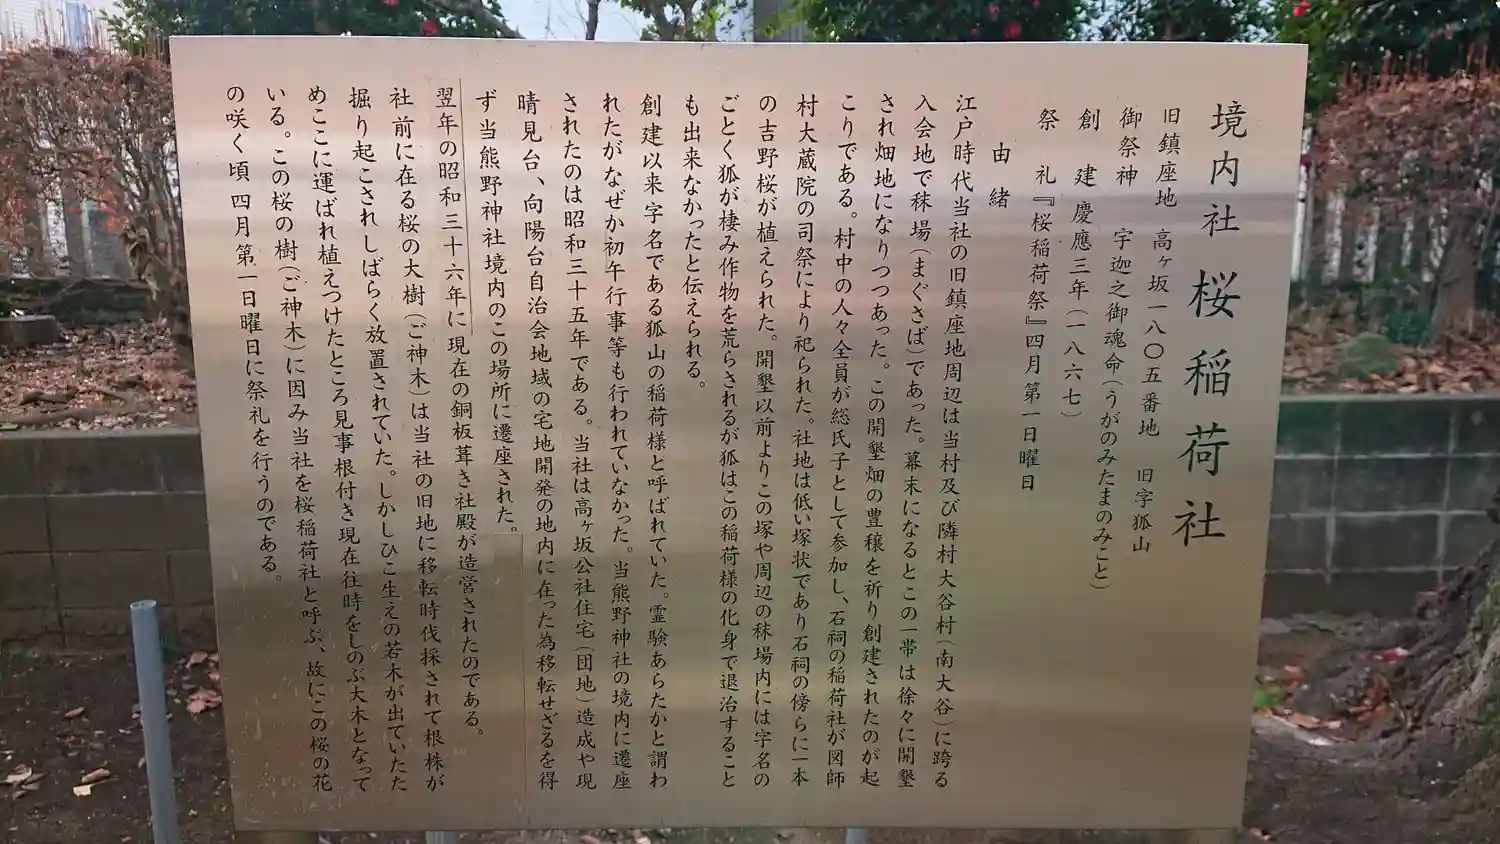 境内社 桜稲荷社
旧鎮座地 高ヶ坂一八〇五番地 旧字狐山
御祭神 宇迦之御魂命(うがのみたまのみこと)
創建 慶應三年(一八六七)
祭礼『桜稲荷祭』四月第一日曜日
由緒
江戸時代当社の旧鎮座地周辺は当村及び隣村大谷村(南大谷)に跨る
入会地で秣場(まぐさば)であった。幕末になるとこの一帯は徐々に開墾
され畑地になりつつあった。この開墾畑の豊穣を祈り創建されたのが起
こりである。村中の人々全員が総氏子として参加し、石祠の稲荷社が図師
村大蔵院の司祭により祀られた。社地は低い塚状であり石祠の傍らに一本
の吉野桜が植えられた。開墾以前よりこの塚や周辺の秣場内には字名の
ごとく狐が棲み作物を荒らされるが狐はこの稲荷様の化身で退治すること
も出来なかったと伝えられる。
創建以来字名である狐山の稲荷様と呼ばれていた。霊験あらたかと謂わ
れたがなぜか初午行事等も行われていなかった。当熊野神社の境内に遷座
されたのは昭和三十五年である。当社は高ヶ坂公社住宅(団地)造成や現
晴見台、向陽台自治会地域の宅地開発の地内に在った為移転せざるを得
ず当熊野神社境内のこの場所に遷座された。
翌年の昭和三十六年に現在の銅板葺き社殿が造営されたのである。
社前に在る桜の大樹(ご神木)は当社の旧地に移転時伐採されて根株が
掘り起こされしばらく放置されていた。しかしひこ生えの若木が出ていたた
めここに運ばれ植えつけたところ見事根付き現在往時をしのぶ大木となって
いる。この桜の樹(ご神木)に因み当社を桜稲荷社と呼ぶ、故にこの桜の花
の咲く頃 四月第一日曜日に祭礼を行うのである。